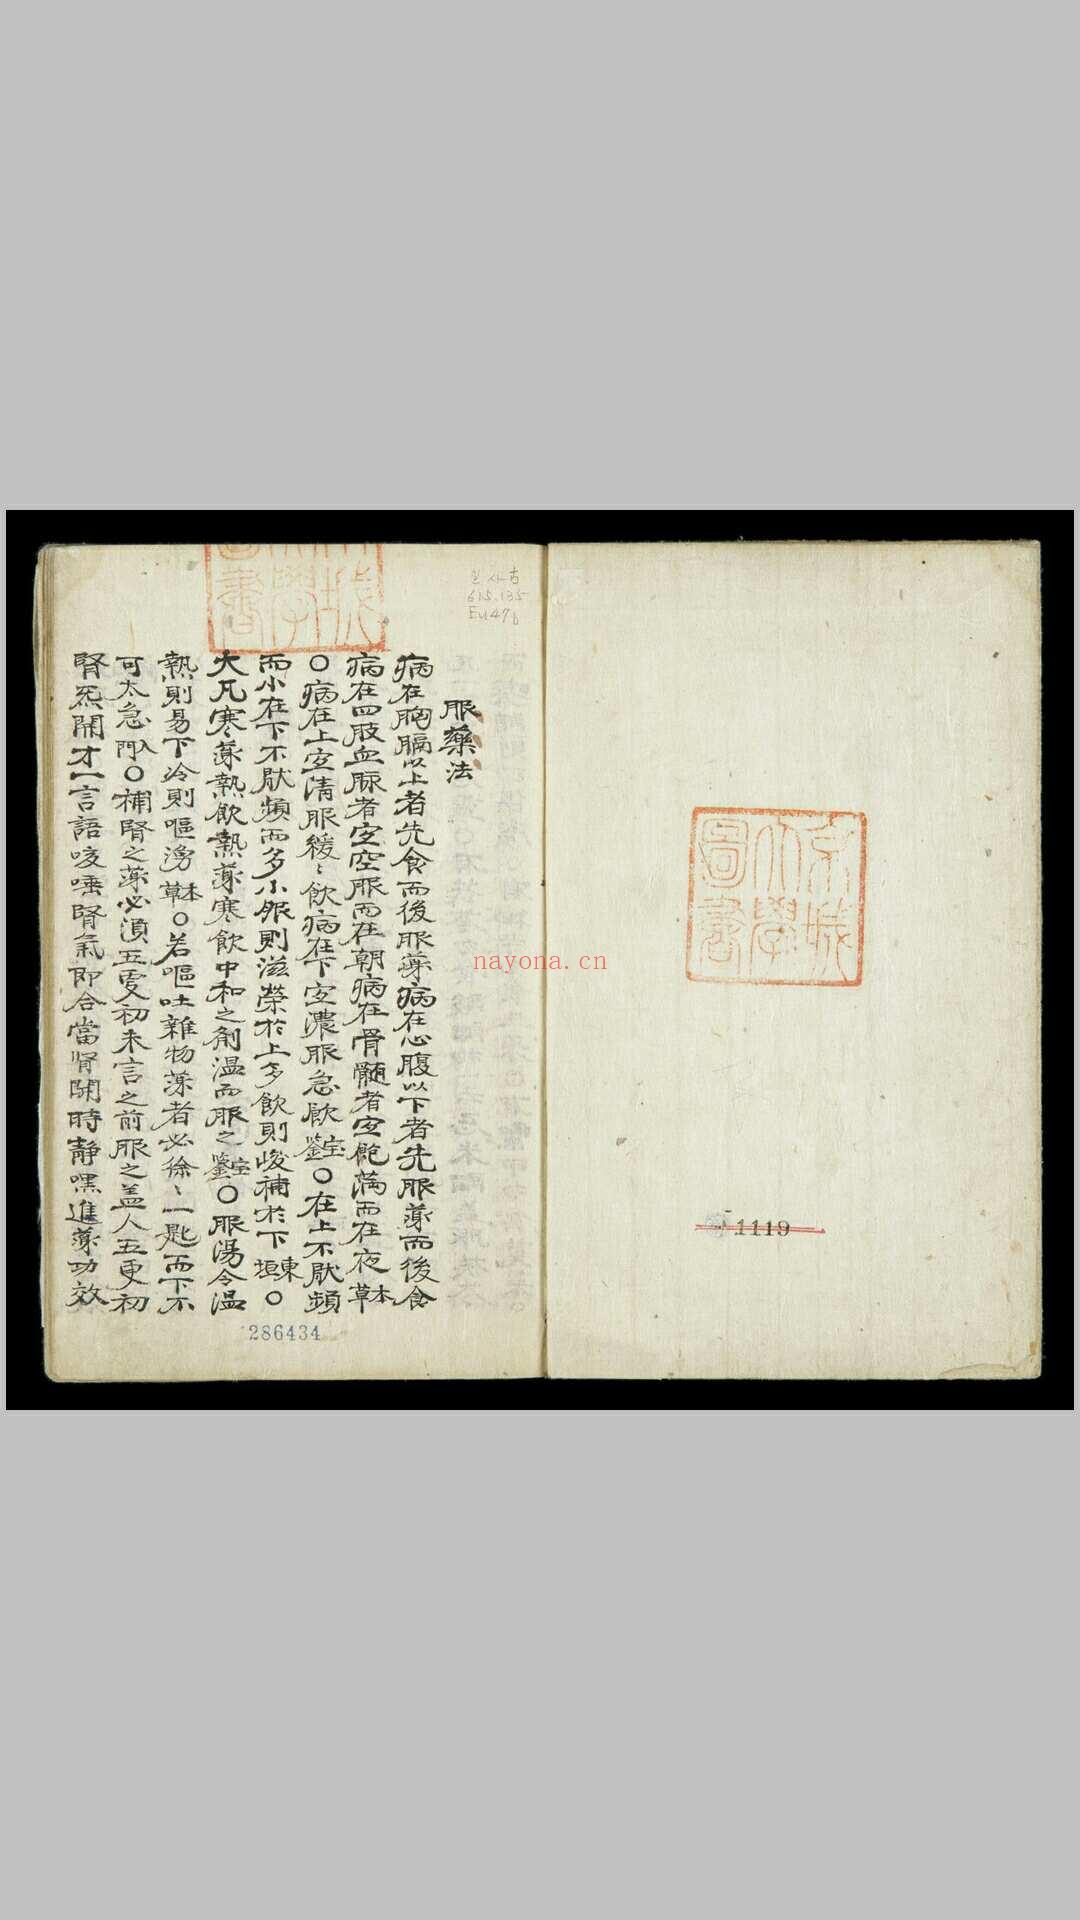 服藥法
病在胸膈以上者先食而後服藥病在心腹以下者先服藥而後食
病在四肢血脉者宜空服而在朝病在骨髓者宜飽滿而在夜本草
○病在上宜清服緩〻飲病在下宜濃服急飮宝鑒○在上不厭頻
而小在下不厭頻而多小服則滋榮於上多飮則峻補於下東垣○
大凡寒藥熱飮熱藥寒飮中和之劑溫而服之宝鑒○服湯令溫
熱則易下冷則嘔湧本草○若嘔吐雜物藥者必徐〻一匙而下不
可太急入門○補腎之藥必須五更初未言之前服之盖人五更初
腎炁開才一言語咳唾腎氣即合當腎開時靜嘿進藥功效
京城
大學
圖書
1119
286434
고
615.135
Eu47b
nayona.cn